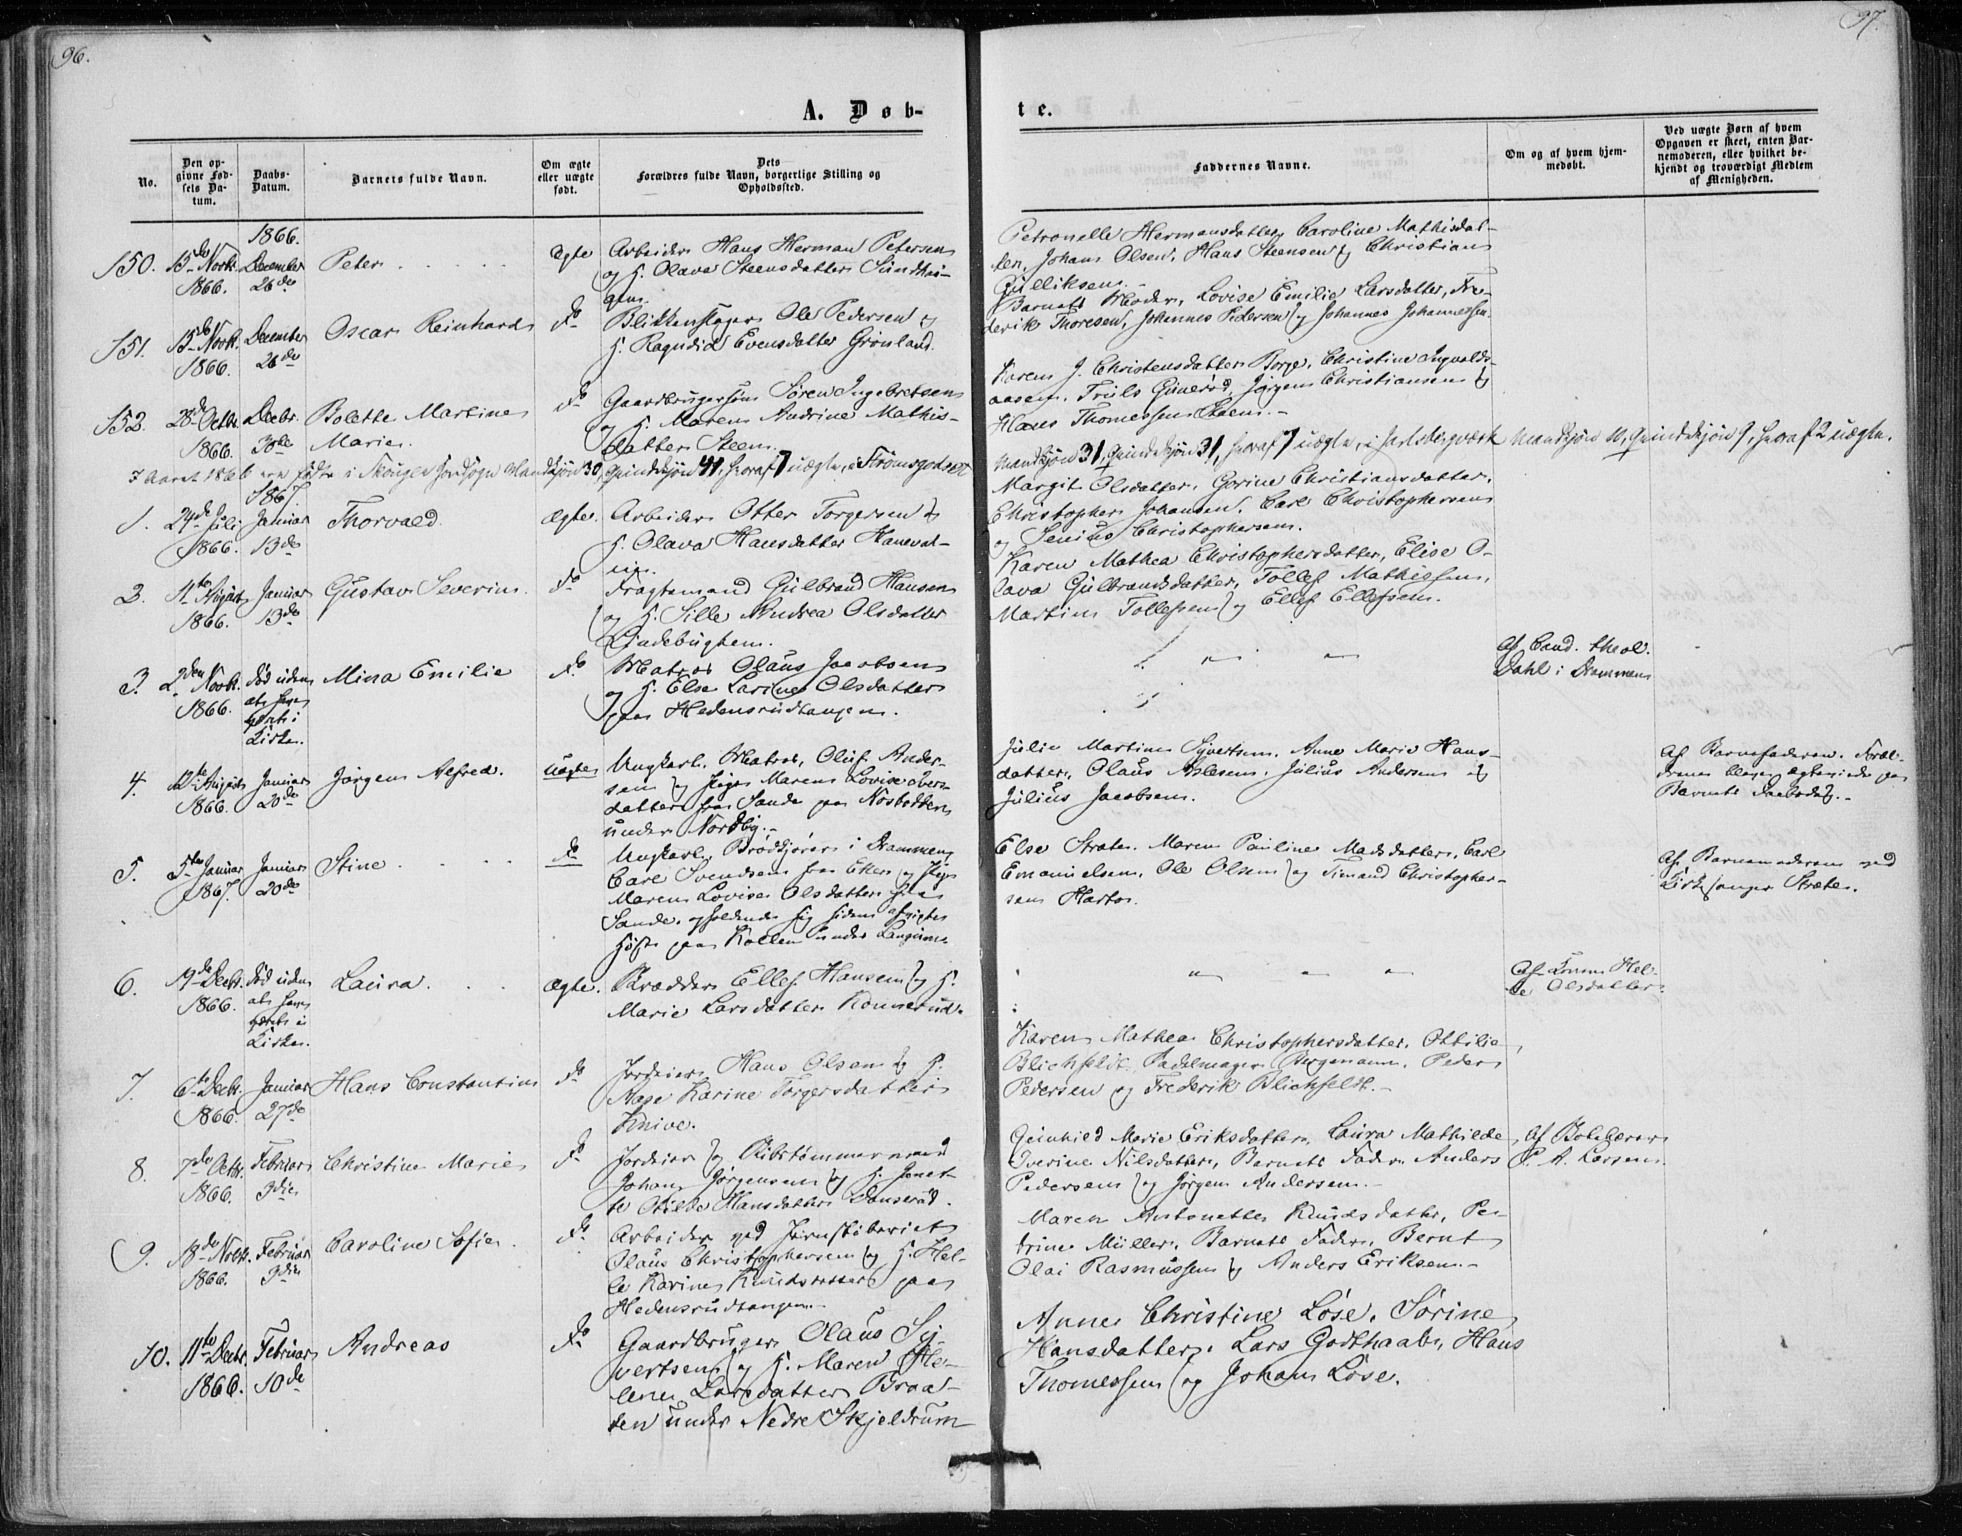 96.
97.
A. Døb-
te.
No.
Den op-
givne Fød-
sels Da-
tum.
Daabs-
Datum.
Barnets fulde Navn.
Om ægte
eller uægte
født.
Dets
Forældres fulde Navn, borgerlige Stilling og
Opholdssted.
Faddernes Navne.
Om og af hvem hjem-
medøbt.
Ved uægte Børn af hvem
Opgaven er skeet, enten Bar-
nemoderen, eller hvilket be-
kjendt og troværdigt Medlem
af Menigheden.
1866.
150.
15de Novbr.
1866.
December
26de
Peter
Ægte
Arbeider Hans Herman Petersen
og H. Olava Steensdatter Sundhau-
gen.
Petronelle Hermansdatter, Caroline Mathisdat-
ter, Johan Olsen, Hans Steensen og Christian
Gulliksen.
151.
15de Novbr.
1866.
December
26de
Oscar Reinhard
do
Blikkenslager Ole Pedersen og
H. Ragndid Evensdatter Grønland.
Barnets Moder, Lovise Emilie Larsdatter, Fre-
derik Thoresen, Johannes Pedersen og Johannes Johannessen.
152.
28de Octbr.
1866.
Decbr.
30te
Bolette Martine
Marie.
do
Gaardbrugersøn Søren Ingebretsen
og H. Maren Andrine Mathis-
datter Steen.
Karen J. Christensdatter Borge, Christine Ingvalds-
aasen, Truls Gunerød, Jørgen Christiansen og
Hans Thomessen Steen.-
I Aaret 1866 ere fødte i Skouger Hovedsogn Mandkjøn 30, Qvindekjøn 41, hvoraf 7 uægte, i Strømsgodset
Mandkjøn 31, Qvindekjøn 31, hvoraf 7 uægte, i Jarlsbergværk Mandkjøn 10, Qvindekjøn 9, hvoraf 2 uægte.
1867
1.
24de Juli
1866.
Januar
13de
Thorvald.
Ægte.
Arbeider Otter Torgersen og
H. Olava Hansdatter Haneval-
en.
Margit Olsdatter, Gorine Christiansdatter,
Christopher Johansen, Carl Christophersen
og Senius Christophersen.
2.
11te August
1866.
Januar
13de
Gustav Severin.
do
Fragtemand Gulbrand Hansen
og H. Sille Andrea Olsdatter
Lindebugten.
Karen Mathea Christophersdatter, Elise O-
lava Gulbrandsdatter, Tollef Mathissen,
Martin Tollefsen og Ellef Ellefsen.
3.
2den Novbr.
1866.
død uden
at være
bragt i
Kirken.
Mina Emilie
do
Matros Olaus Jacobsen
og H. Else Larine Olsdatter
paa Hedensrudtangen.
" " "
Af Cand. theol.
Dahl i Drammen
4.
12te August
1866.
Januar
20de
Jørgen Alfred.
uægte
Ungkarl, Matros, Oluf Ander-
sen og Pige Maren Lovise
datter fra Sande paa Nøsbotten
under Nordby.-
Julie Martine Syvertsen, Anne Marie Hans-
datter, Olaus Aslesen, Julius Andersen og
Julius Jacobsen.
Af Barnefaderen. Foræl-
drene bleve ægteviede paa
Barnets Daabsdag.-
5.
5te Januar
1867.
Januar
20de
Stine
do
Ungkarl, Brødkjører i Drammen,
Carl Svendsen fra Eker og Pige
Maren Lovise Olsdatter fra
Sande, opholdende sig siden afvigte
Høst paa Kollen under Langum.
Else Stræte, Maren Pauline Madsdatter, Carl
Emanuelsen, Ole Olsen og Timand Christopher-
sen Harto.
Af Barnemoderen ved
Kirkesanger Stræte.
6.
19de Decbr.
1866.
død uden
at være
bragt i
Kirken.
Laura.
Ægte.
Skrædder Ellef Hansen og H.
Marie Larsdatter Konnerud.
" " "
Af Konen Hel-
le Olsdatter.
7.
6te Decbr.
1866.
Januar
27de
Hans Constantin
do
Jordeier Hans Olsen og H.
Aase Karine Torgersdatter
Knive.
Karen Mathea Christophersdatter, Ottilie
Blichfeldt, Sadelmager Bergmann, Peder
Pedersen og Frederik Blichfeldt.-
8.
7de Octbr.
1866.
Februar
3die
Christine Marie
do
Jordeier og Skibstømmermand
Johan Jørgensen og H. Jonet-
te Otilde Hansdatter Danserud.
Gunhild Marie Eriksdatter, Laura Mathilde
Iverine Nilsdatter, Barnets Fader, Anders
Pedersen og Jørgen Andersen.-
Af Boteberer
P. A. Larsen.
9.
18de Novbr.
1866.
Februar
3die
Caroline Sofie
do
Arbeider ved Jernstøberiet
Olaus Christophersen og H. Hel-
le Karine Knudsdatter paa
Hedensrudtangen.-
Maren Antonette Knudsdatter, Pe-
trine Müller, Barnets Fader, Bernt
Olai Rasmussen og Anders Eriksen.-
10.
11te Decbr.
1866.
Februar
10de
Andreas
do
Gaardbruger Olaus Sy-
vertsen og H. Maren He-
lene Larsdatter Braa-
ten under Nedre Skjeldrum
Anne Christine Løse, Sørine
Hansdatter, Lars Godthaab, Hans
Thomessen og Johan Løse.